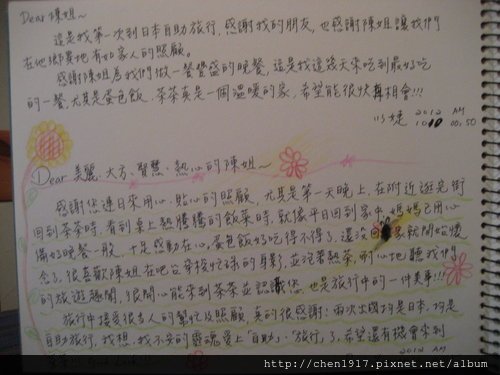 Dear 陳姐~
這是我第一次到日本自助旅行,感謝我的朋友,也感謝陳姐讓我們
在他鄉異地有如家人的照顧。
感謝陳姐為我們做一餐豐盛的晚餐,這是我這幾天來吃到最好吃
的一餐,尤其是蛋包飯.茶茶真是一個溫暖的家,希望能很快再相會!!!
2012 AM
10 00:50
Dear 美麗、大方、智慧、熱心的陳姐~
感謝您連日來用心、貼心的照顧,尤其是第一天晚上,在附近逛完街
回到茶茶時,看到桌上熱騰騰的飯菜時,就像平日回到家中,媽媽已用心
備好晚餐一般,十足感動在心,蛋包飯好吃得不得了,還沒回家就開始懷
念了,很喜歡陳姐在吧台穿梭忙碌的身影,並泡著熱茶,耐心地聽我們
的旅遊趣聞,很開心能來到茶茶並認識您,也是旅行中的一件美事!!!
旅行中接受很多人的幫忙及照顧,真的很感謝!兩次出國均是日本,均是
自助旅行,我想,我不安的靈魂愛上「自助」、「旅行」了,希望還有機會來到
2012 AM
http://chen1917.pixnet.net/album